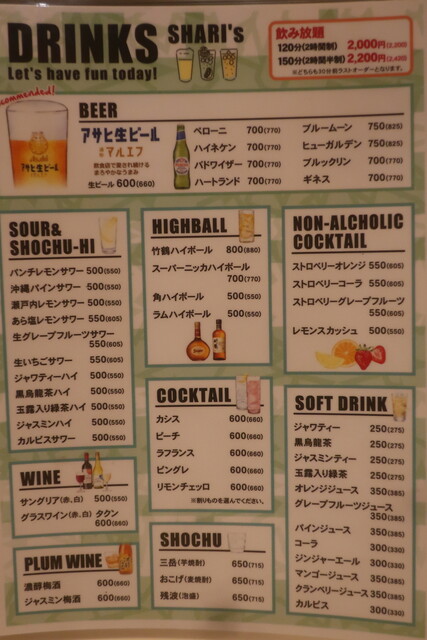 DRINKS SHARI's
Let's have fun today!
飲み放題
120分(2時間制) 2,000円(2,200)
150分(2時間半制) 2,200円(2,420)
※どちらも30分前ラストオーダーとなります。
commended!
BEER
アサヒ生ビール
通称マルエフ
飲食店で愛され続ける
まろやかなうまみ
生ビール 600(660)
ペローニ 700(770)
ハイネケン 700(770)
バドワイザー 700(770)
ハートランド 700(770)
ブルームーン 750(825)
ヒューガルデン 750(825)
ブルックリン 700(770)
ギネス 700(770)
SOUR&
SHOCHU-HI
パンチレモンサワー 500(550)
沖縄パインサワー 500(550)
瀬戸内レモンサワー 500(550)
あら塩レモンサワー 550(605)
生グレープフルーツサワー
550(605)
生いちごサワー 550(605)
ジャワティーハイ 500(550)
黒烏龍茶ハイ 500(550)
玉露入り緑茶ハイ 500(550)
ジャスミンハイ 500(550)
カルピスサワー 500(550)
WINE
サングリア(赤、白) 500(550)
グラスワイン(赤、白) タクン
600(660)
PLUM WINE
濃醇梅酒 600(660)
ジャスミン梅酒 600(660)
HIGHBALL
竹鶴ハイボール 800(880)
スーパーニッカハイボール
700(770)
角ハイボール 500(550)
ラムハイボール 500(550)
COCKTAIL
カシス 600(660)
ピーチ 600(660)
ラフランス 600(660)
ピングレ 600(660)
リモンチェッロ 600(660)
※割りものを選んでください。
SHOCHU
三岳(芋焼酎) 650(715)
おこげ(麦焼酎) 650(715)
残波(泡盛) 650(715)
NON-ALCHOLIC
COCKTAIL
ストロベリーオレンジ 550(605)
ストロベリーコーラ 550(605)
ストロベリーグレープフルーツ
550(605)
レモンスカッシュ 500(550)
SOFT DRINK
ジャワティー 250(275)
黒烏龍茶 250(275)
ジャスミンティー 250(275)
玉露入り緑茶 250(275)
オレンジジュース 350(385)
グレープフルーツジュース
350(385)
パインジュース 350(385)
コーラ 300(330)
ジンジャーエール 300(330)
マンゴージュース 350(385)
クランベリージュース 350(385)
カルピス 300(330)